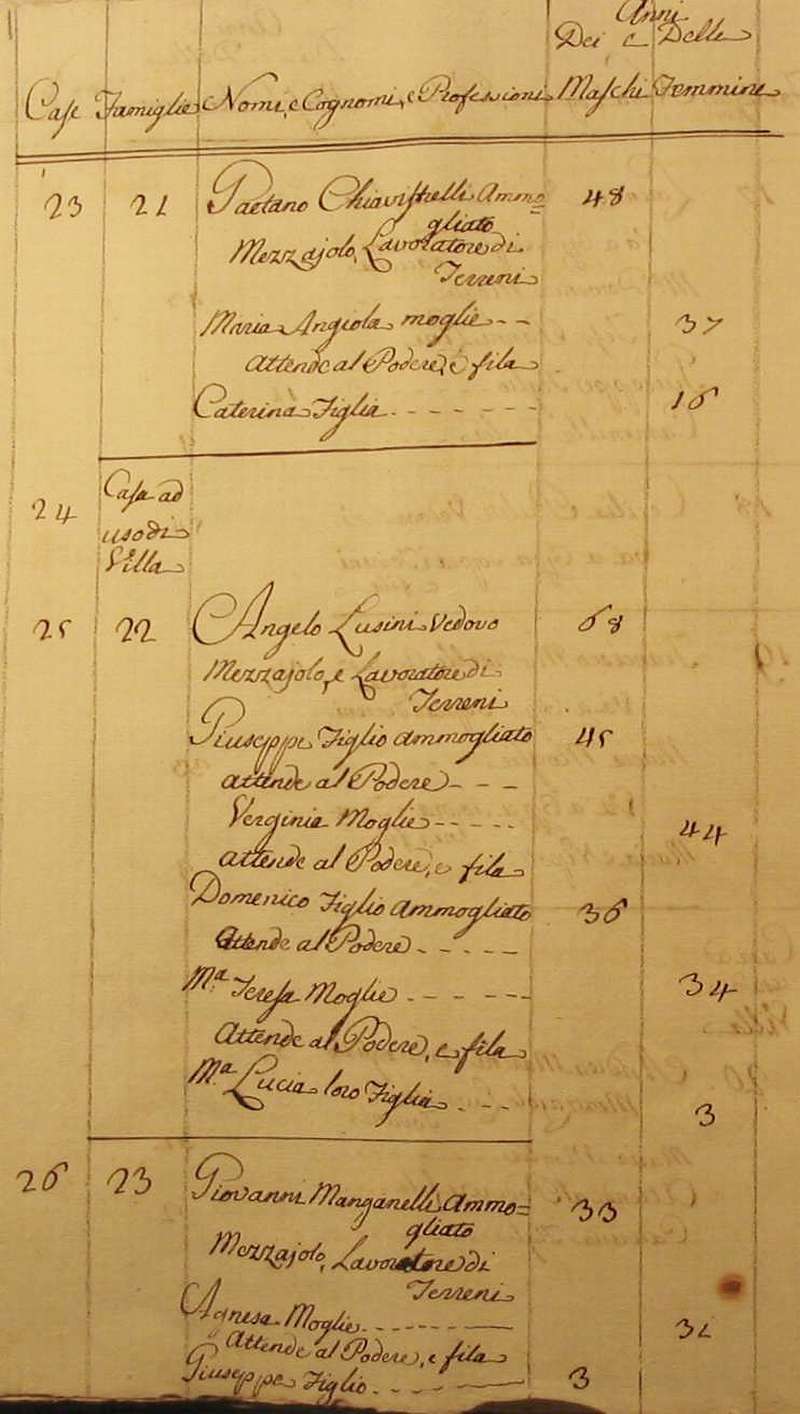 Anni
Dei e Delle
Case Famiglie Nomi, e Cognomi, e Professioni Maschi Femmine
23 21 Gaetano Chiavistrelli Ammo= 48
gliato
Mezzajolo, Lavoratore di
Terreni
Maria Angiola moglie - - 37
attende al Podere, e fila
Caterina Figlia - - - - - 16
24 Casa ad
uso di
Villa
25 22 Angelo Lusini Vedovo 68
Mezzajolo, e Lavoratore di
Terreni
Giuseppe Figlio ammogliato 45
attende al Podere - - -
Verginia Moglie - - - - - 44
attende al Podere, e fila
Domenico Figlio Ammogliato 36
Attende al Podere - - - - -
Mª Teresa Moglie - - - - - 34
Attende al Podere, e fila
Mª Lucia loro Figlia - - - 3
26 23 Giovanni Manganelli Ammo= 33
gliato
Mezzajolo, Lavoratore di
Terreni
Agnesa Moglie - - - - - - 32
Attende al Podere, e fila
Giuseppe Figlio - - - - 3